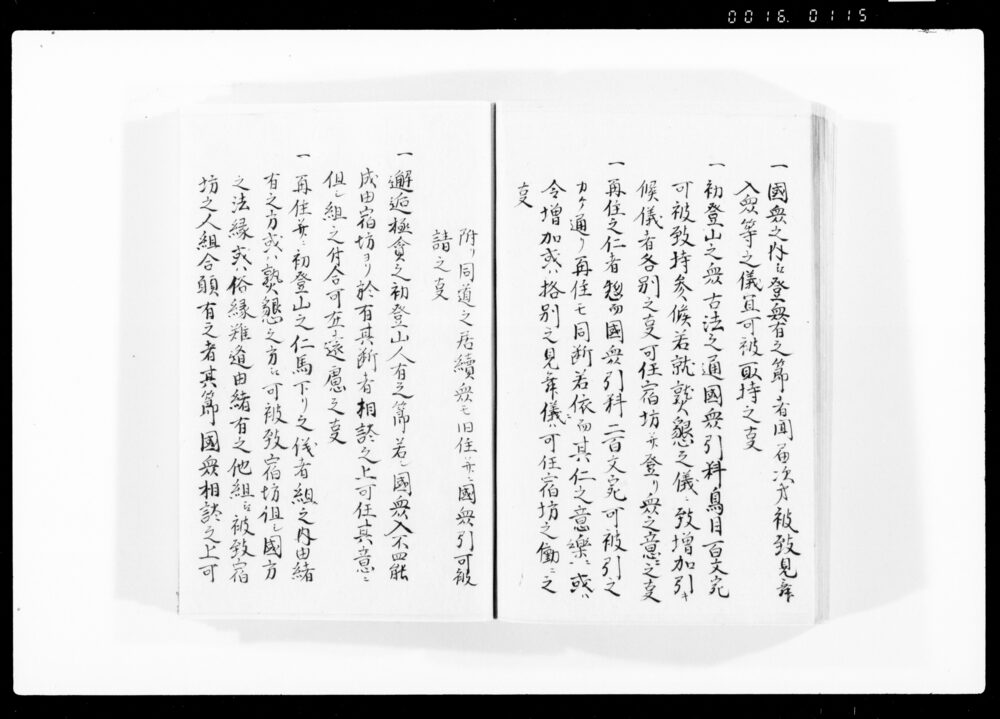 0016. 0115
一國衆之内ニ登衆有之節者聞届次才被致見舞
入魚等之儀宜可被取持之㕝
一初登山之衆古法之通國衆引料鳥目百文宛
可被致持参候若就懇之儀ニ致増加引キ
候儀者各別之㕝可任宿坊并登リ衆之意ニ之㕝
一再住之仁者惣而國衆引料二百文宛可被引之
カケ通リ再住モ同断若依而其仁之意樂ニ或ハ
令増加或ハ格別之見舞儀ハ可任宿坊之働ニ之
㕝
附リ同道之居續衆モ旧住并ニ國衆引可被
請之㕝
一邂逅極貧之初登山人有之節若シ國衆入不罷
成由宿坊ヨリ於有其断者相談之上可任其意ニ
但シ組之付合可在遠慮之㕝
一再住并ニ初登山之仁馬下リ之儀者組之内由緒
有之方或ハ熟懇之方ニ可被致宿坊但シ國方
之法縁或ハ俗縁難逢由緒有之他組ニ被致宿
坊之人組合頭有之者其節國衆相談之上可